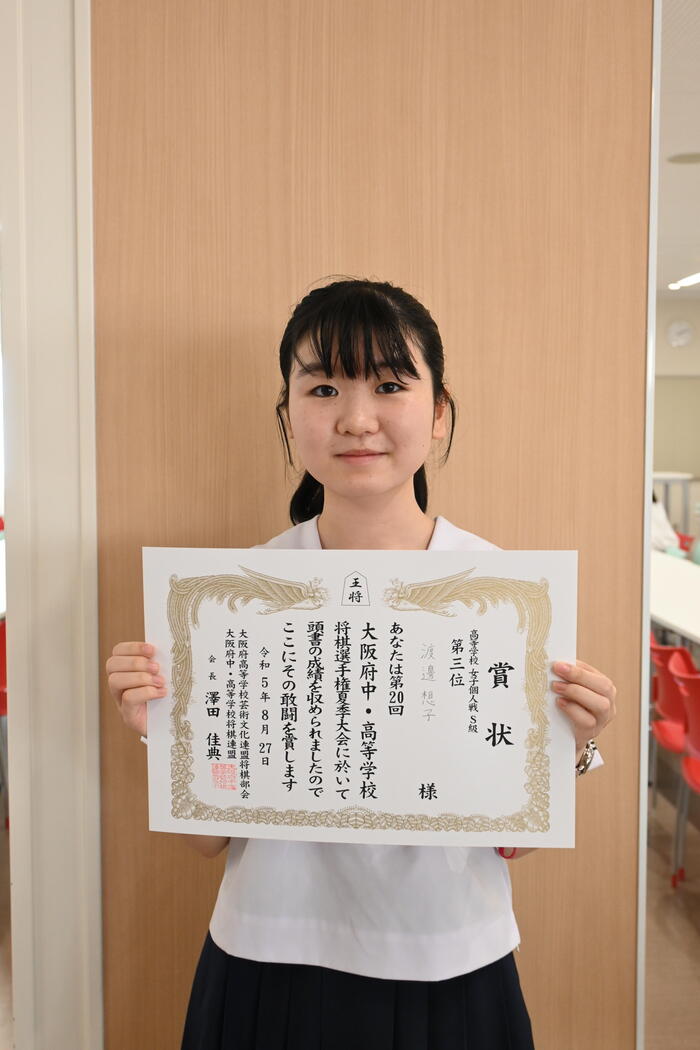 王将
賞状
高等学校 女子個人戦 S級
第三位
渡邉想子
様
あなたは第20回
大阪府中・高等学校
将棋選手権夏季大会に於いて
頭書の成績を収められましたので
ここにその敢闘を賞します
令和5年8月27日
大阪府高等学校芸術文化連盟将棋部会
大阪府中・高等学校将棋連盟
会長 澤田佳典